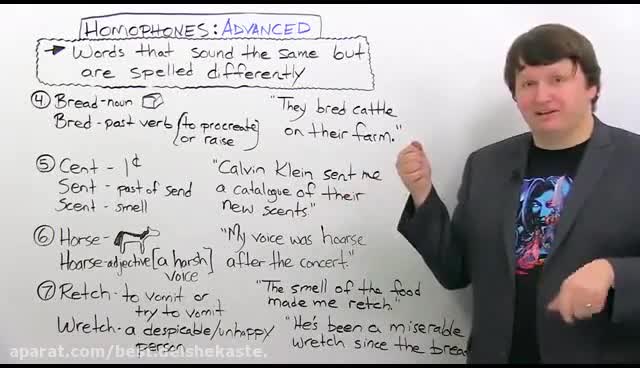 HOMOPHONES: ADVANCED
→ Words that sound the same but
are spelled differently
④ Bread - noun
Bred - past verb [to procreate]
or raise
"They bred cattle
on their farm."
⑤ Cent - 1¢
Sent - past of send
Scent - smell
"Calvin Klein sent me
a catalogue of their
new scents."
⑥ Horse -
Hoarse - adjective [a harsh]
voice
"My voice was hoarse
after the concert."
⑦ Retch - to vomit or
try to vomit
"The smell of the food
made me retch."
Wretch - a despicable/unhappy
person
"He's been a miserable
wretch since the brea
aparat.com/best.deishekaste.